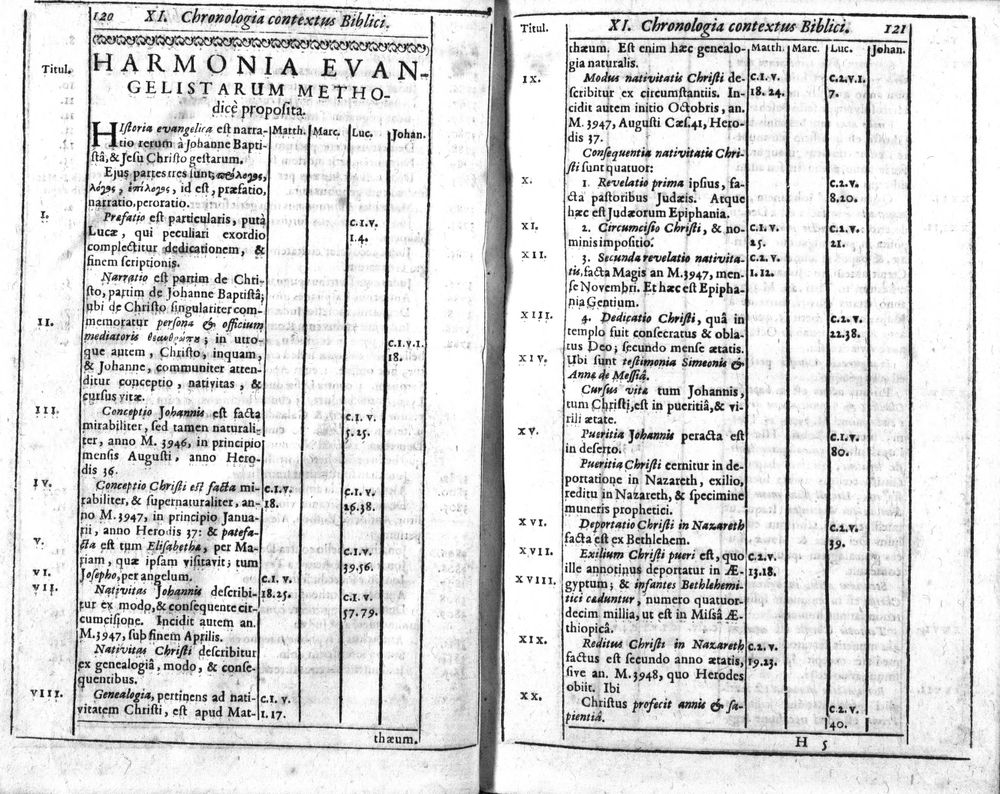 120 XI. Chronologia contextus Biblici.
Titul.
HARMONIA EVAN-
GELISTARUM METHO-
dicè proposita.
Matth. Marc. Luc. Johan.
HIstoria evangelica est narra-
tio rerum à Johanne Bapti-
stâ, & Jesu Christo gestarum.
Ejus partes tres sunt; πρόλογος,
λόγος, ἐπίλογος, id est, præfatio,
narratio, peroratio.
I. Præfatio est particularis, putà C. I. V.
Lucæ, qui peculiari exordio 1. 4.
complectitur dedicationem, &
finem scriptionis.
Narratio est partim de Chri-
sto, partim de Johanne Baptistâ;
ubi de Christo singulariter com-
II. memoratur persona & officium
mediatoris θεανθρώπου; in utro- C. I. V. I.
que autem, Christo, inquam, 18.
& Johanne, communiter atten-
ditur conceptio, nativitas, &
cursus vitæ.
III. Conceptio Johannis est facta C. I. V.
mirabiliter, sed tamen naturali- 5. 25.
ter, anno M. 3946, in principio
mensis Augusti, anno Hero-
dis 36.
IV. Conceptio Christi est facta mi- C. I. V. C. I. V.
rabiliter, & supernaturaliter, an- 18. 26.38.
no M. 3947, in principio Janua-
rii, anno Herodis 37: & patefa-
V. cta est tum Elisabethæ, per Ma- C. I. V.
riam, quæ ipsam visitavit; tum 39.56.
VI. Josepho, per angelum. C. I. V.
VII. Nativitas Johannis describi- 18.25. C. I. V.
tur ex modo, & consequente cir- 57.79.
cumcisione. Incidit autem an.
M. 3947, sub finem Aprilis.
Nativitas Christi describitur
ex genealogiâ, modo, & conse-
quentibus.
VIII. Genealogia, pertinens ad nati- C. I. V.
vitatem Christi, est apud Mat- 1. 17.
thæum.
XI. Chronologia contextus Biblici. 121
Titul.
Matth. Marc. Luc. Johan.
thæum. Est enim hæc genealo-
gia naturalis.
IX. Modus nativitatis Christi de- C. I. V. C.2.V.I.
scribitur ex circumstantiis. In- 18. 24. 7.
cidit autem initio Octobris, an.
M. 3947, Augusti Cæs. 41, Hero-
dis 37.
Consequentia nativitatis Chri-
sti sunt quatuor:
X. 1. Revelatio prima ipsius, fa- C.2.V.
cta pastoribus Judæis. Atque 8.20.
hæc est Judæorum Epiphania.
XI. 2. Circumcisio Christi, & no- C. I. V. C.2.V.
minis impositio. 25. 21.
XII. 3. Secunda revelatio nativita- C.2.V.
tis, facta Magis an M.3947, men- 1.12.
se Novembri. Et hæc est Epipha-
nia Gentium.
XIII. 4. Dedicatio Christi, quâ in C.2.V.
templo fuit consecratus & obla- 22.38.
tus Deo; secundo mense ætatis.
XIV. Ubi sunt testimonia Simeonis &
Annæ de Messiâ.
Cursus vitæ tum Johannis,
tum Christi, est in pueritiâ, & vi-
rili ætate.
XV. Pueritia Johannis peracta est C.I.V.
in deserto. 80.
Pueritia Christi cernitur in de-
portatione in Nazareth, exilio,
reditu in Nazareth, & specimine
muneris prophetici.
XVI. Deportatio Christi in Nazareth C.2.V.
facta est ex Bethlehem. 39.
XVII. Exilium Christi pueri est, quo C.2.V.
ille annotinus deportatur in Æ- 13.18.
XVIII. gyptum; & infantes Bethlehemi-
tici cæduntur, numero quatuor-
decim millia, ut est in Missâ Æ-
thiopicâ.
XIX. Reditus Christi in Nazareth C.2.V.
factus est secundo anno ætatis, 19.23.
sive an. M. 3948, quo Herodes
obiit. Ibi
XX. Christus profecit annis & sa- C.2.V.
pientiâ. 40.
H 5